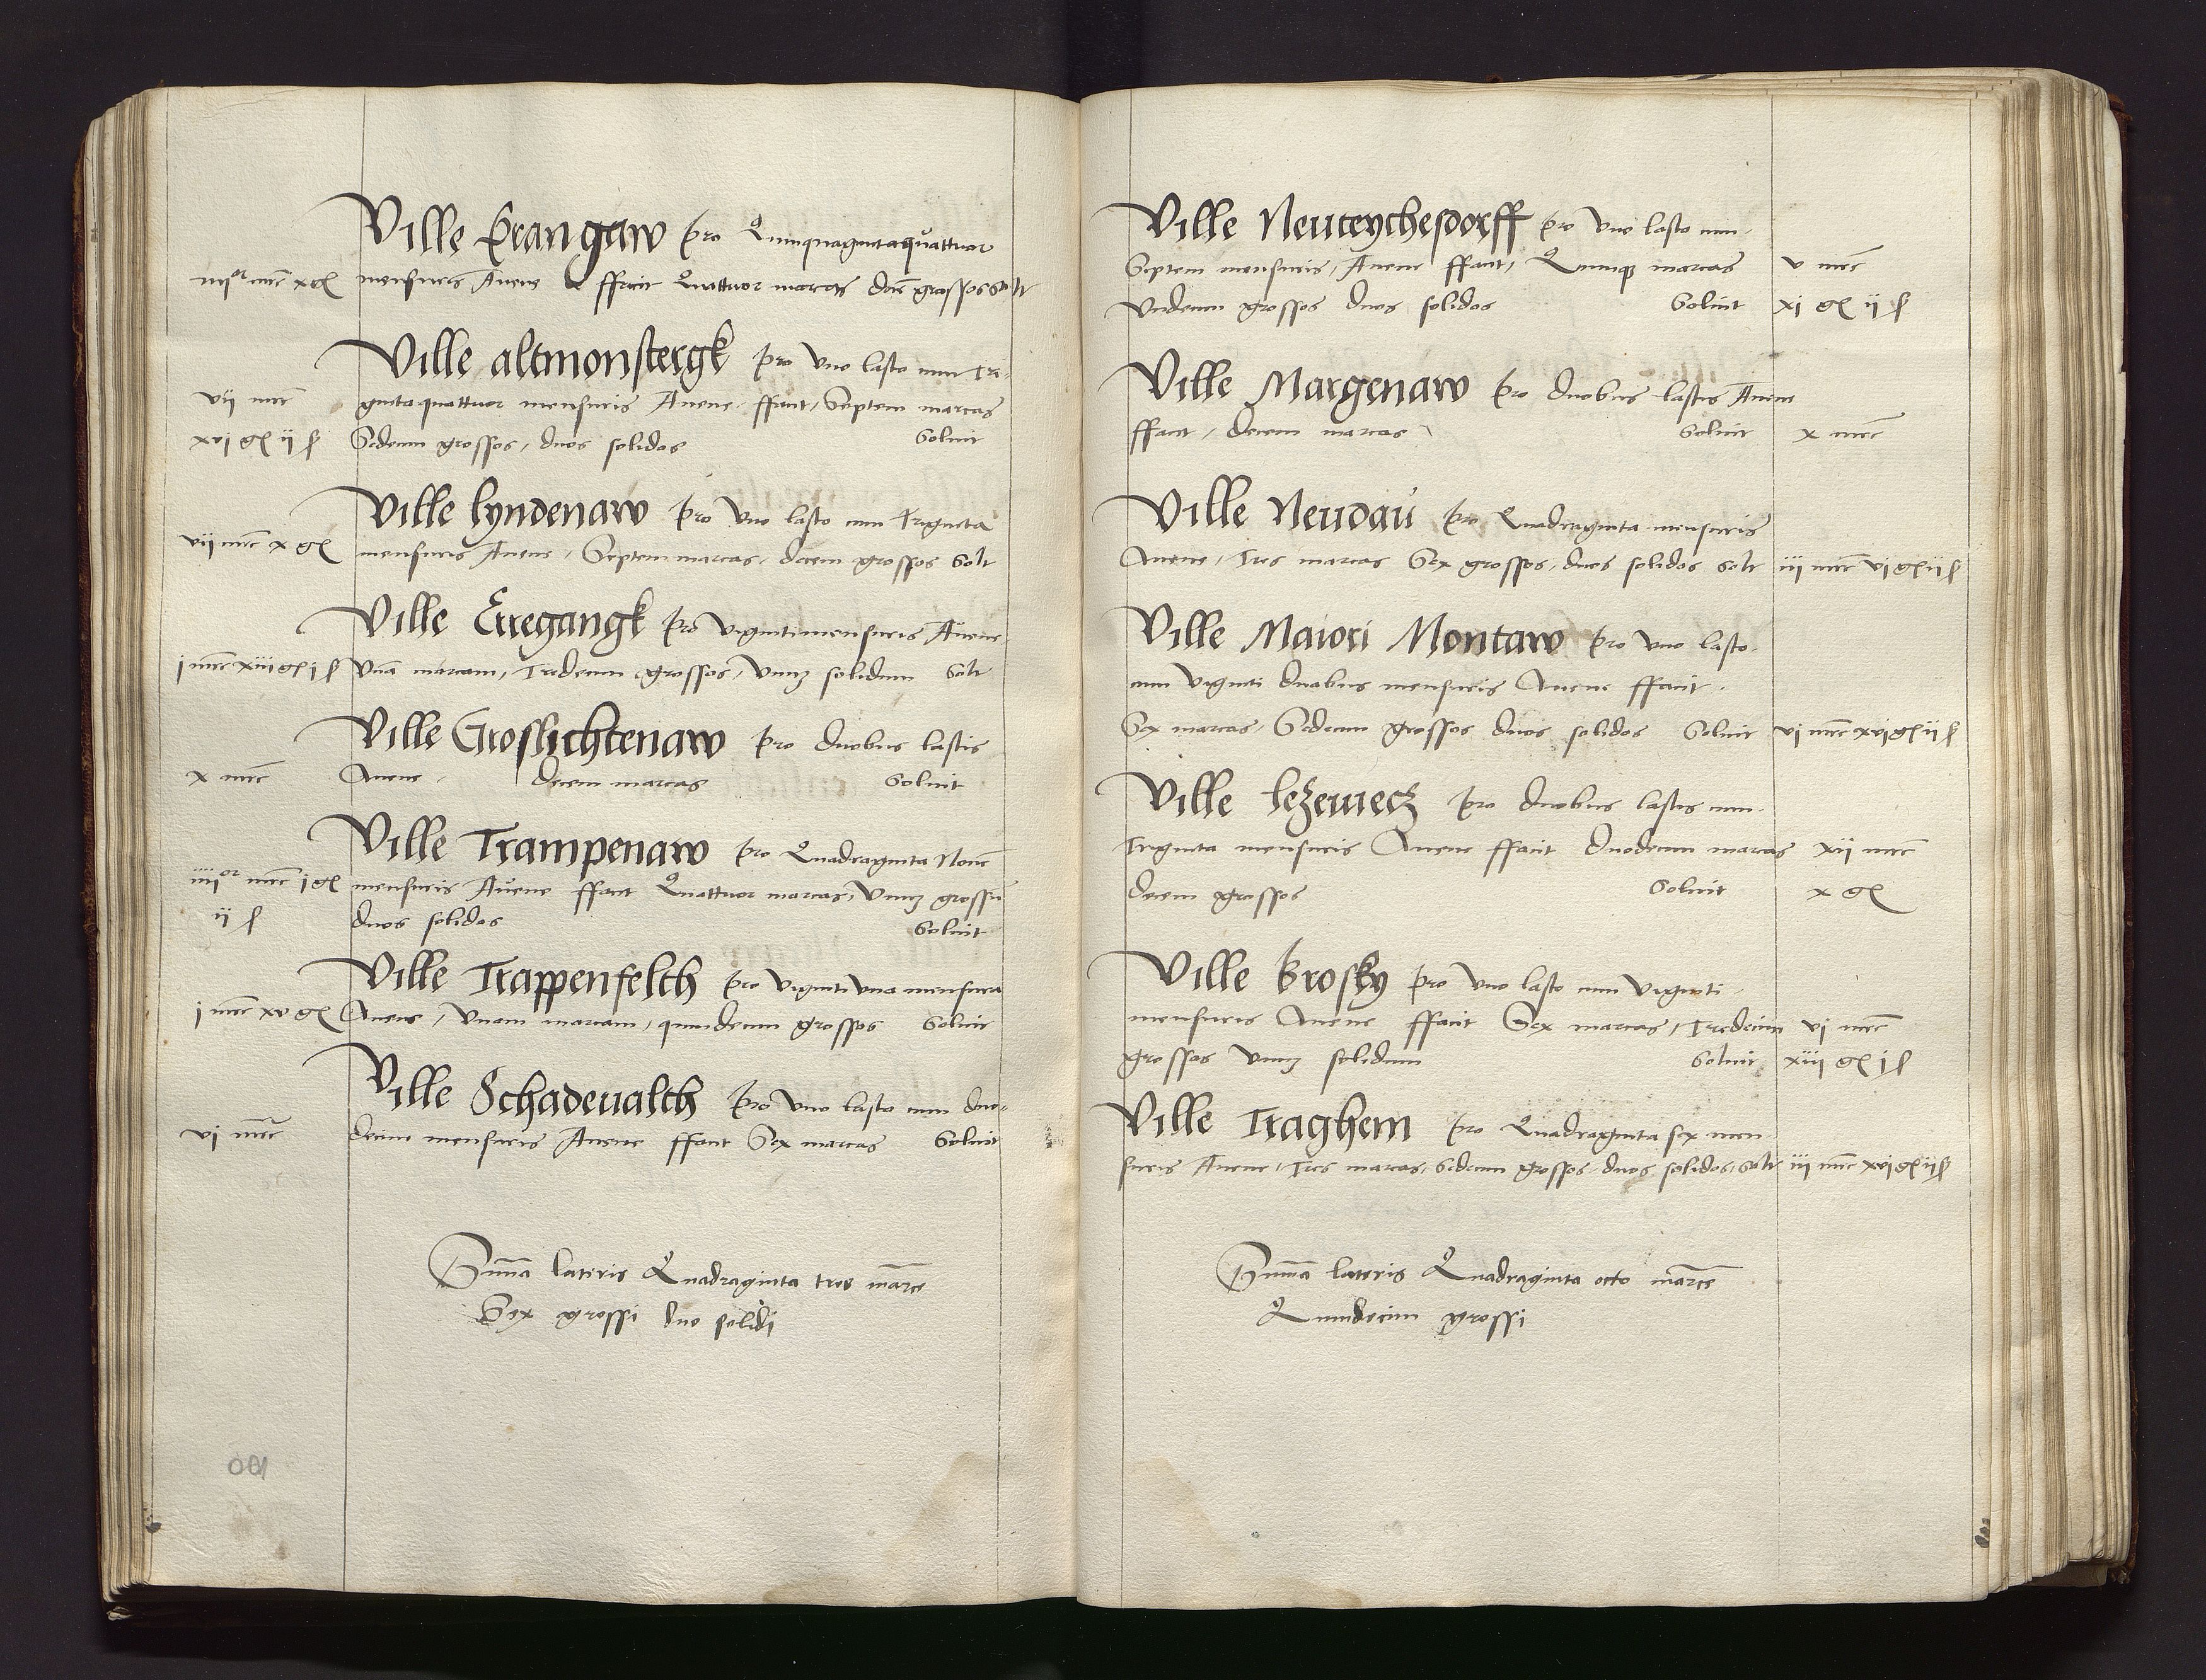 Ville Prangaw pro Quinquagintaquattuor
iiijor mrc x gl mensuris Auene ffacit Quattuor marcas dece grossos Solt
Ville altmonstergk pro vno lasto cum Tri-
vij mrc gintaquattuor mensuris Auene ffaciunt Septem marcas
xvj gl ij ſ Sedecim grossos, duos solidos Soluit
Ville lyndenaw pro vno lasto cum Triginta
vij mrc x gl mensuris Auene, Septem marcas, decem grossos Solt
Ville Erregangk pro viginti mensuris Auene
j mrc xiij gl j ſ Vna marcam, Tredecim grossos, Vnuz solidum Solt
Ville Groslichtenaw pro duobus lastis
x mrc Auene, decem marcas Soluit
Ville Trampenaw pro Quadraginta Noue
iiijor mrc j gl mensuris Auene ffaciunt Quattuor marcas, Vnuz grossu
ij ſ duos solidos Soluit
Ville Trappenfelth pro viginti vna mensura
j mrc xv gl Auene, Vnam marcam, quindecim grossos Soluit
Ville Schadeualth pro vno lasto cum duo-
vj mrc decim mensuris Auene ffaciunt Sex marcas Soluit
Suma lateris Quadraginta tres marce
Sex grossi duo solidi
100
Ville Neuteychesdorff pro vno lasto cum
Septem mensuris, Auene ffaciunt, Quinqz marcas v mrc
Vndecim grossos duos solidos Soluit xj gl ij ſ
Ville Margenaw pro duobus lastis Auene
ffaciunt, decem marcas Soluit x mrc
Ville Neudau pro Quadraginta mensuris
Auene, Tres marcas Sex grossos, duos solidos Solt iij mrc vj gl ij ſ
Ville Maiori Montaw pro vno lasto
cum viginti duabus mensuris Auene ffacit
Sex marcas, Sedecim grossos duos solidos Soluit vj mrc xvj gl ij ſ
Ville lezewicz pro duobus lastis cum
Triginta mensuris Auene ffaciunt duodecim marcas xij mrc
decem grossos Soluit x gl
Ville Brosky pro vno lasto cum viginti
mensuris Auene ffacit Sex marcas, Tredecim vj mrc
grossos Vnuz solidum Soluit xiij gl j ſ
Ville Traghem pro Quadraginta sex men-
suris Auene, Tres marcas, Sedecim grossos duos solidos, Solt iij mrc xvj gl ij ſ
Suma lateris Quadraginta octo marce
Quindecim grossi